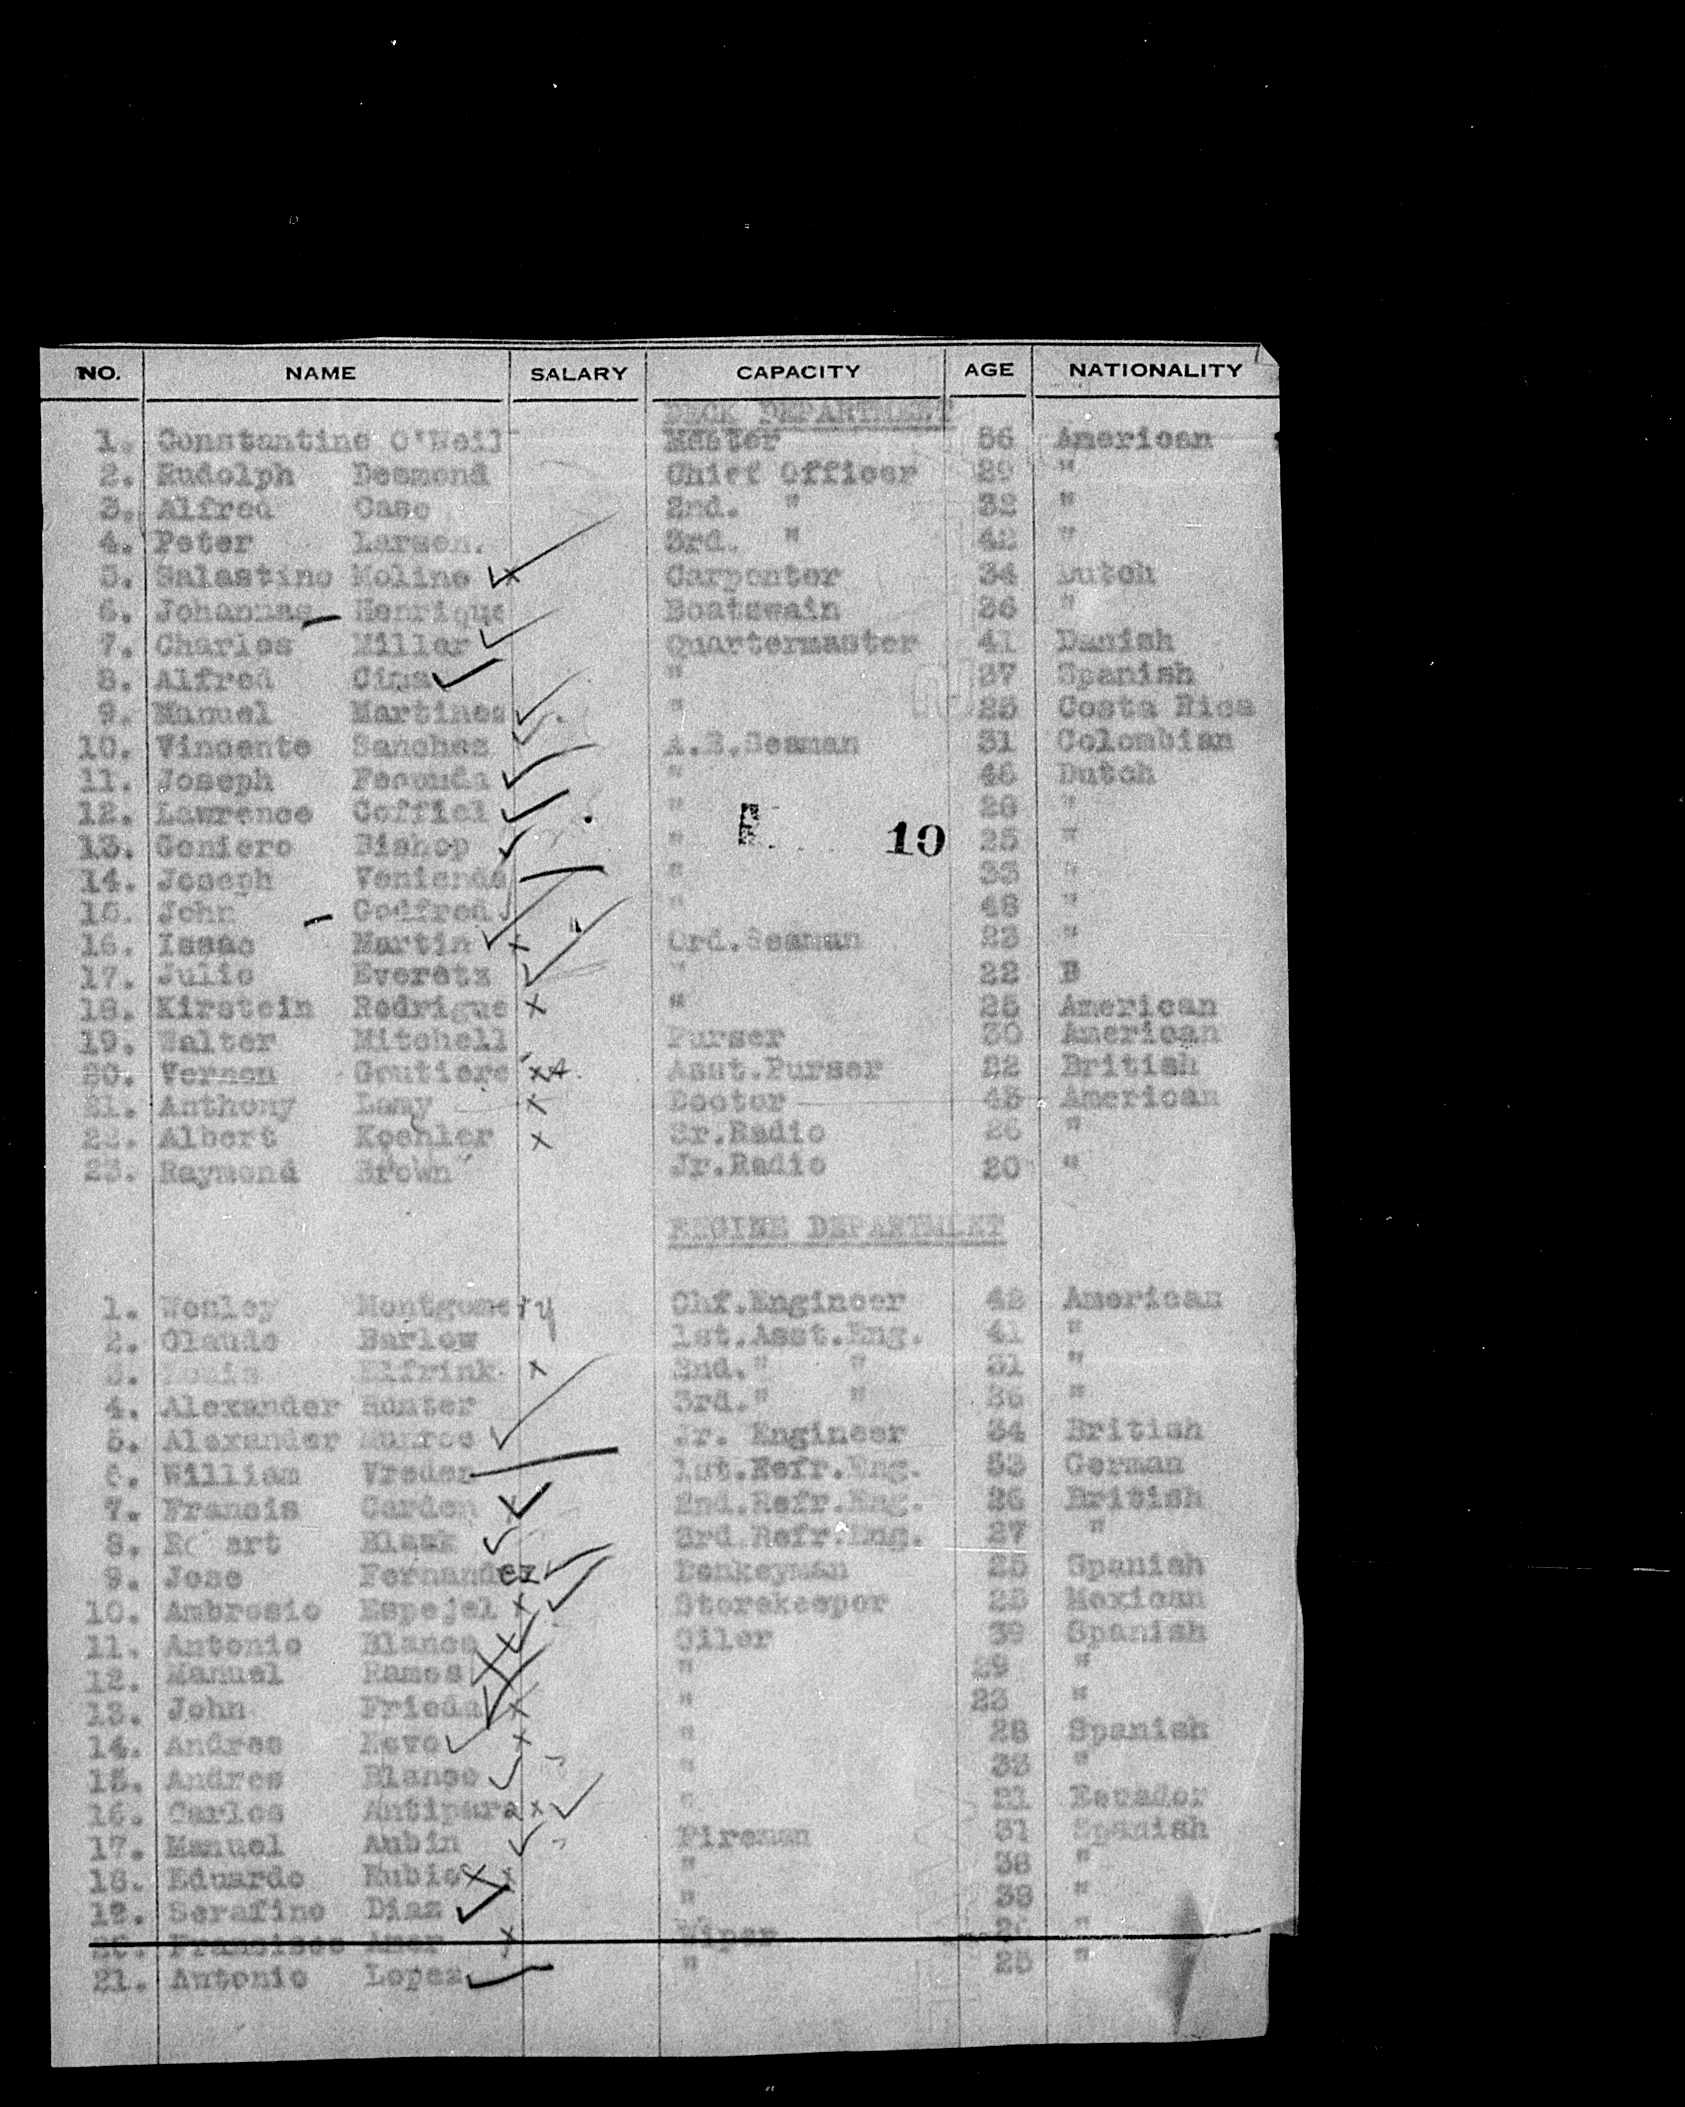 NO. NAME SALARY CAPACITY AGE NATIONALITY
DECK DEPARTMENT
1. Constantine O'Neil Master 56 American
2. Rudolph Desmond Chief Officer 29 "
3. Alfred Case 2nd. " 32 "
4. Peter Larsen. 3rd. " 42 "
5. Salastino Moline Carpenter 34 Dutch
6. Johannas Henrique Boatswain 36 "
7. Charles Miller Quartermaster 41 Danish
8. Alfred " 37 Spanish
9. Manuel Martines " 25 Costa Rica
10. Vincente Sanchez A.B.Seaman 31 Colombian
11. Joseph " 46 Dutch
12. Lawrence Coffiel " 28 "
13. Goniero Bishop " 25 "
19
14. Joseph " 33 "
15. John Godfred " 48 "
16. Isaac Martin Ord.Seaman 23 "
17. Julio Everetz " 22 B
18. Kirstein Rodrigue " 25 American
19. Walter Mitchell Purser 30 American
20. Vernon Goutiere Asst.Purser 22 British
21. Anthony Lamy Doctor 45 American
22. Albert Koehler Sr.Radio 26 "
23. Raymond Brown Jr.Radio 20 "
ENGINE DEPARTMENT
1. Wesley Montgomery Chf.Engineer 42 American
2. Claude Barlow 1st.Asst.Eng. 41 "
3. Louis Elfrink 2nd." " 31 "
4. Alexander Hunter 3rd." " 36 "
5. Alexander Munroe Jr. Engineer 34 British
6. William Vreden 1st.Refr.Eng. 53 German
7. Francis Carden 2nd.Refr.Eng. 26 British
8. Ro ert Blank 3rd.Refr.Eng. 27 "
9. Jose Fernandez Donkeyman 25 Spanish
10. Ambrosio Espejel Storekeeper 25 Mexican
11. Antonio Blanco Oiler 39 Spanish
12. Manuel Ramos " 29 "
13. John Frieda " 23 "
14. Andres Novo " 28 Spanish
15. Andres Blanco " 33 "
16. Carlos Antipara " 21 Ecuador
17. Manuel Aubin Fireman 31 Spanish
18. Eduardo Rubio " 38 "
19. Serafino Diaz " 39 "
20. Francisco Amor Wiper "
21. Antonio Lopez " 25 "